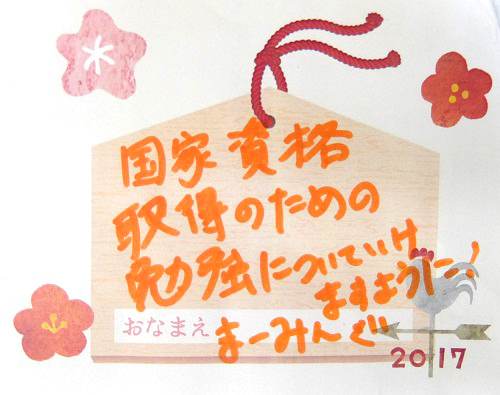 国家資格
取得のための
勉強についていけ
ますように!
おなまえ
まーみんぐ
2017